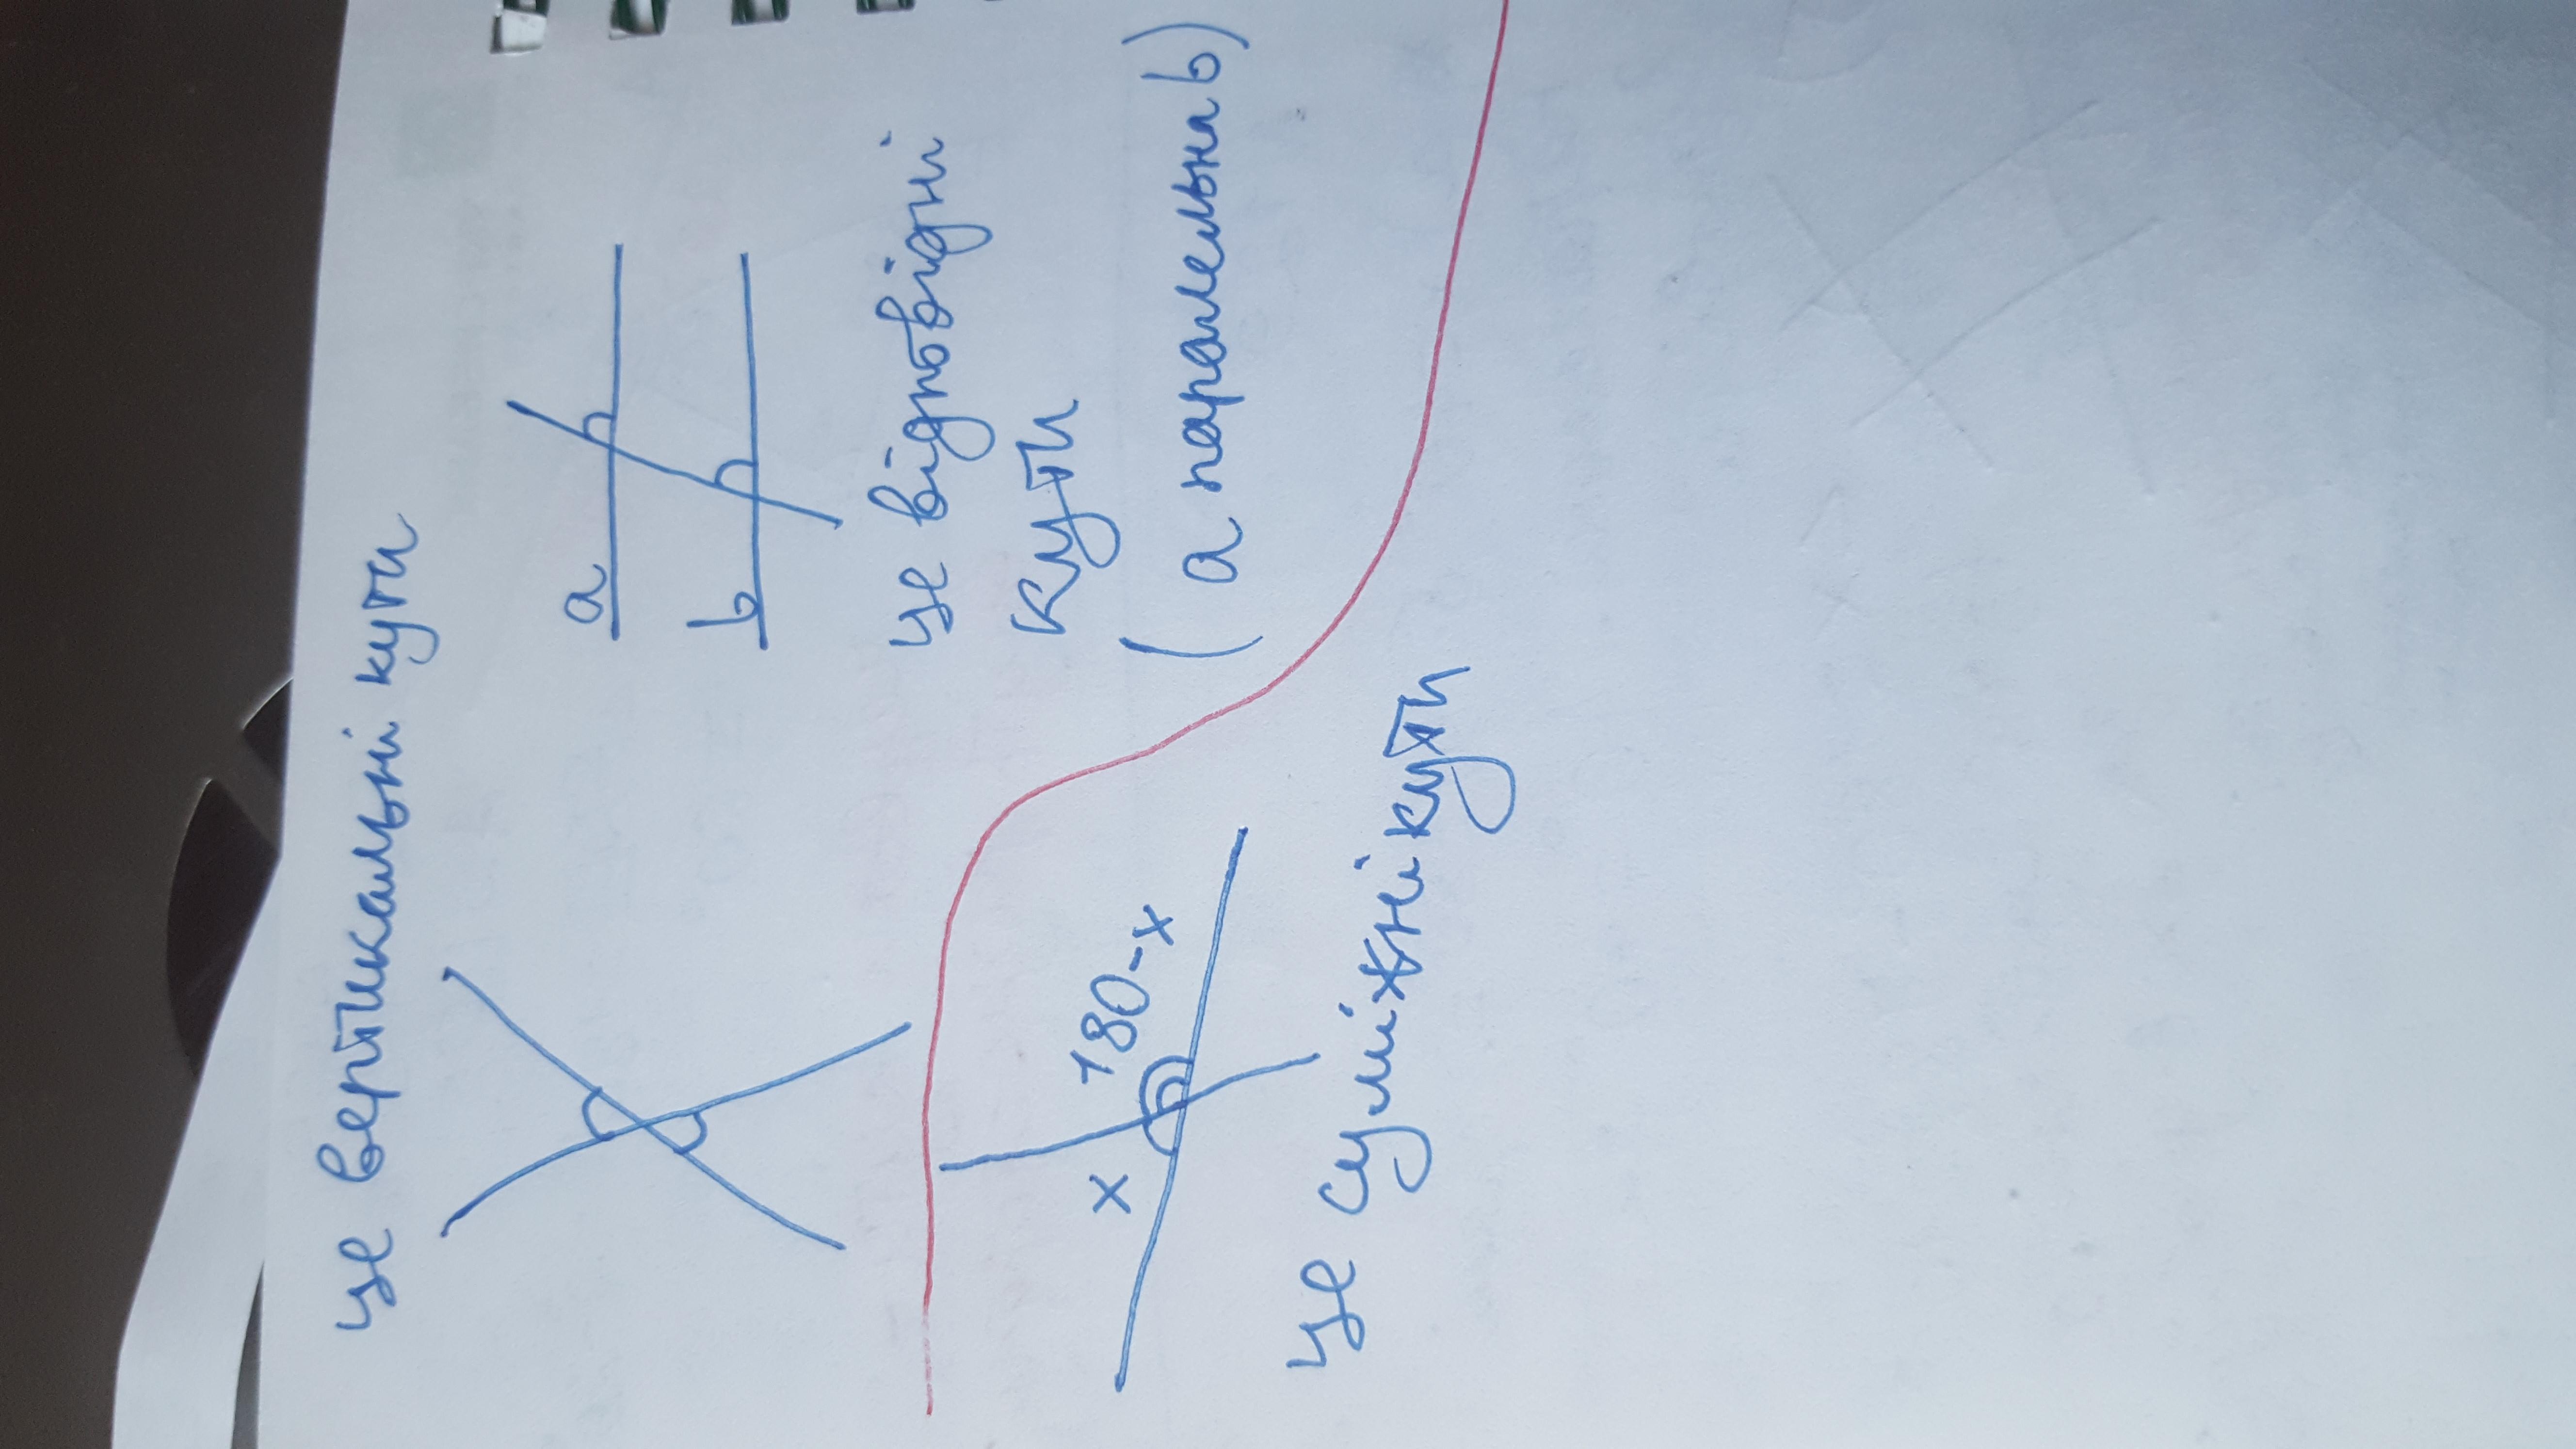 це вертикальні кути
a
b
це відповідні
кути
(а паралельна b)
x
180-x
це суміжні кути